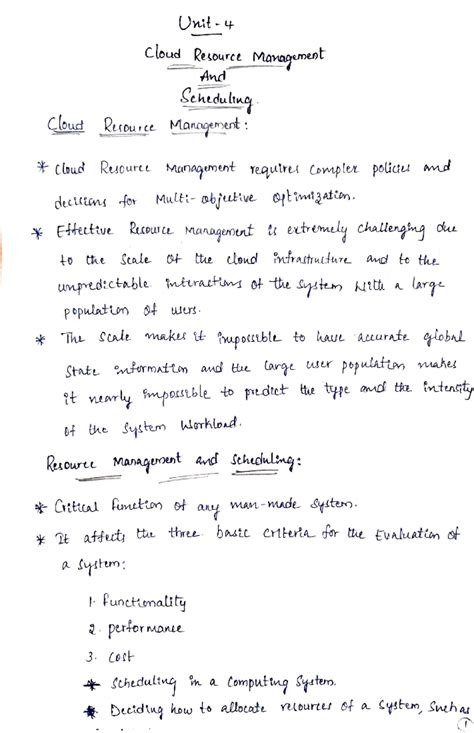 Unit - 4
Cloud Resource Management
And
Scheduling.
Cloud Resource Management:
* Cloud Resource Management requires complex policies and
decisions for Multi-objective optimization.
* Effective Resource Management is extremely challenging due
to the scale of the cloud infrastructure and to the
unpredictable interactions of the system with a large
population of users.
* The scale makes it impossible to have accurate global
state information and the large user population makes
it nearly impossible to predict the type and the intensity
of the system workload.
Resource Management and Scheduling:
* Critical function of any man-made system.
* It affects the three basic criteria for the Evaluation of
a system:
1. functionality
2. performance
3. cost
* Scheduling in a computing system.
* Deciding how to allocate resources of a system, such as
1